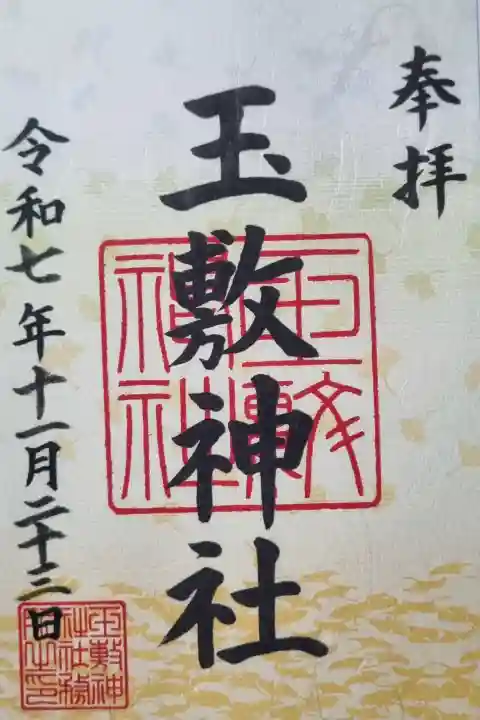 奉拝
玉敷神社
令和七年十一月二十三日
玉敷神社
玉敷神社社務所之印